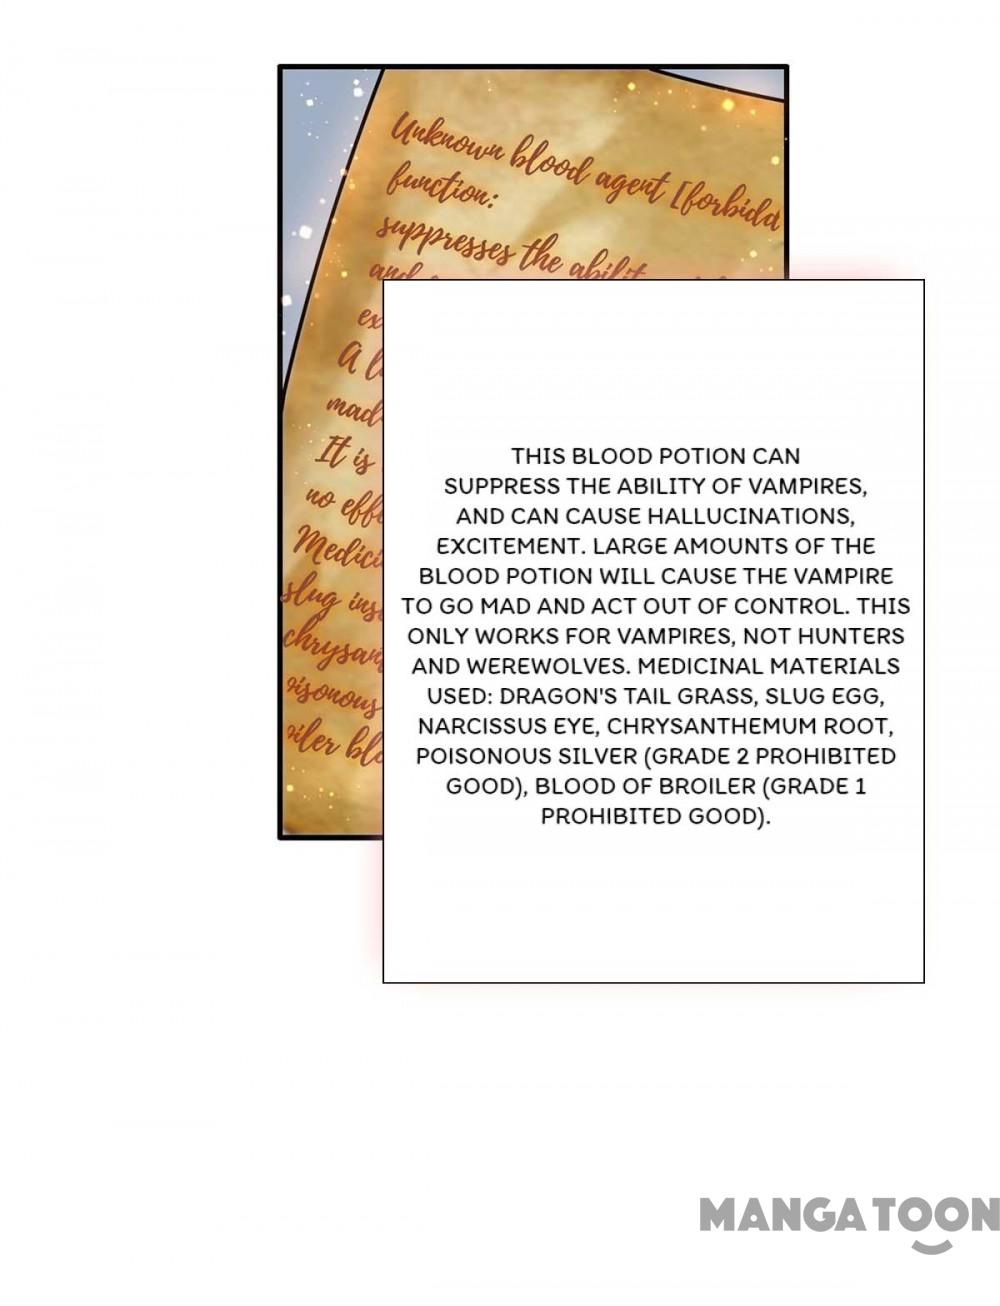 Unknown blood agent
function:
suppresses the
A
It is
no
slug
THIS BLOOD POTION CAN
SUPPRESS THE ABILITY OF VAMPIRES,
AND CAN CAUSE HALLUCINATIONS,
EXCITEMENT. LARGE AMOUNTS OF THE
BLOOD POTION WILL CAUSE THE VAMPIRE
TO GO MAD AND ACT OUT OF CONTROL. THIS
ONLY WORKS FOR VAMPIRES, NOT HUNTERS
AND WEREWOLVES. MEDICINAL MATERIALS
USED: DRAGON'S TAIL GRASS, SLUG EGG,
NARCISSUS EYE, CHRYSANTHEMUM ROOT,
POISONOUS SILVER (GRADE 2 PROHIBITED
GOOD), BLOOD OF BROILER (GRADE 1
PROHIBITED GOOD).
MANGATOON